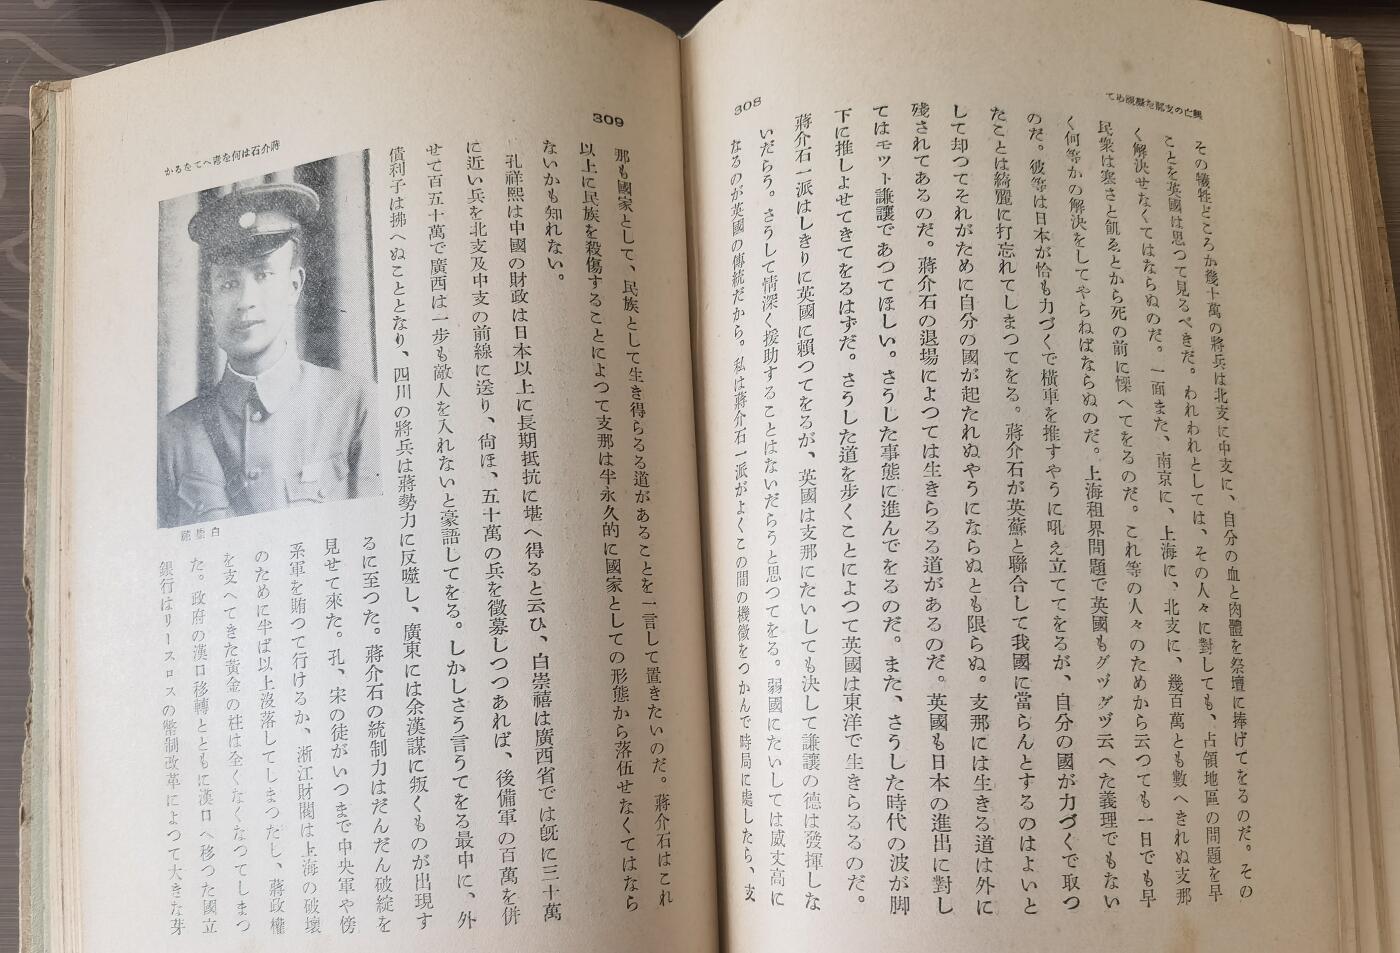 興亡の支那を凝視めて
その犧牲どころか幾十萬の將兵は北支に中支に、自分の血と肉體を祭壇に捧げてをるのだ。その
ことを英國は思つて見るべきだ。われわれとしては、その人々に對しても、占領地區の問題を早
く解決せなくてはならぬのだ。一面また、南京に、上海に、北支に、幾百萬とも數へきれぬ支那
民衆は寒さと飢ゑとから死の前に慄へてをるのだ。これ等の人々のためから云つても一日でも早
く何等かの解決をしてやらねばならぬのだ。上海租界問題で英國もグヅグヅ云へた義理でもない
のだ。彼等は日本が恰も力づくで橫車を推すやうに吼え立ててをるが、自分の國が力づくで取つ
たことは綺麗に打忘れてしまつてをる。蔣介石が英蘇と聯合して我國に當らんとするのはよいと
して却つてそれがために自分の國が起たれぬやうにならぬとも限らぬ。支那には生きる道は外に
殘されてあるのだ。蔣介石の退場によつては生きらるる道があるのだ。英國も日本の進出に對し
てはモツト謙讓であつてほしい。さうした事態に進んでをるのだ。また、さうした時代の波が脚
下に推しよせてきてをるはずだ。さうした道を步くことによつて英國は東洋で生きらるるのだ。
蔣介石一派はしきりに英國に賴つてをるが、英國は支那にたいしても決して謙讓の德は發揮しな
いだらう。さうして情深く援助することはないだらうと思つてをる。弱國にたいしては威丈高に
なるのが英國の傳統だから。私は蔣介石一派がよくこの間の機微をつかんで時局に處したら、支
308
309
那も國家として、民族として生き得らるる道があることを一言して置きたいのだ。蔣介石はこれ
以上に民族を殺傷することによつて支那は半永久的に國家としての形態から落伍せなくてはなら
ないかも知れない。
孔祥熙は中國の財政は日本以上に長期抵抗に堪へ得ると云ひ、白崇禧は廣西省では旣に三十萬
に近い兵を北支及中支の前線に送り、尙ほ、五十萬の兵を徵募しつつあれば、後備軍の百萬を併
せて百五十萬で廣西は一步も敵人を入れないと豪語してをる。しかしさう言うてをる最中に、外
債利子は拂へぬこととなり、四川の將兵は蔣勢力に反噬し、廣東には余漢謀に叛くものが出現す
るに至つた。蔣介石の統制力はだんだん破綻を
見せて來た。孔、宋の徒がいつまで中央軍や傍
系軍を賄つて行けるか、浙江財閥は上海の破壞
のために半ば以上沒落してしまつたし、蔣政權
を支へてきた黃金の柱は全くなくなつてしまつ
た。政府の漢口移轉とともに漢口へ移つた國立
銀行はリースロスの幣制改革によつて大きな芽
白崇禧
蔣介石は何を考へてをるか